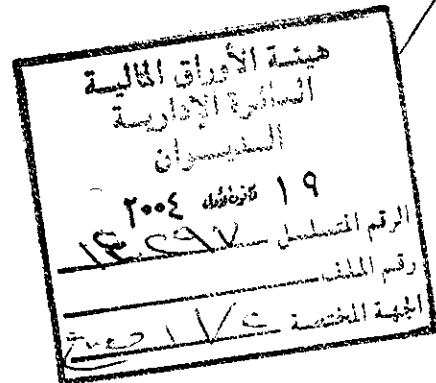 هيئة الأوراق المالية
الدائرة الإدارية
الديوان
١٩ كانون الأول ٢٠٠٤
الرقم المتسلسل
رقم الملف
الجهة المختصة